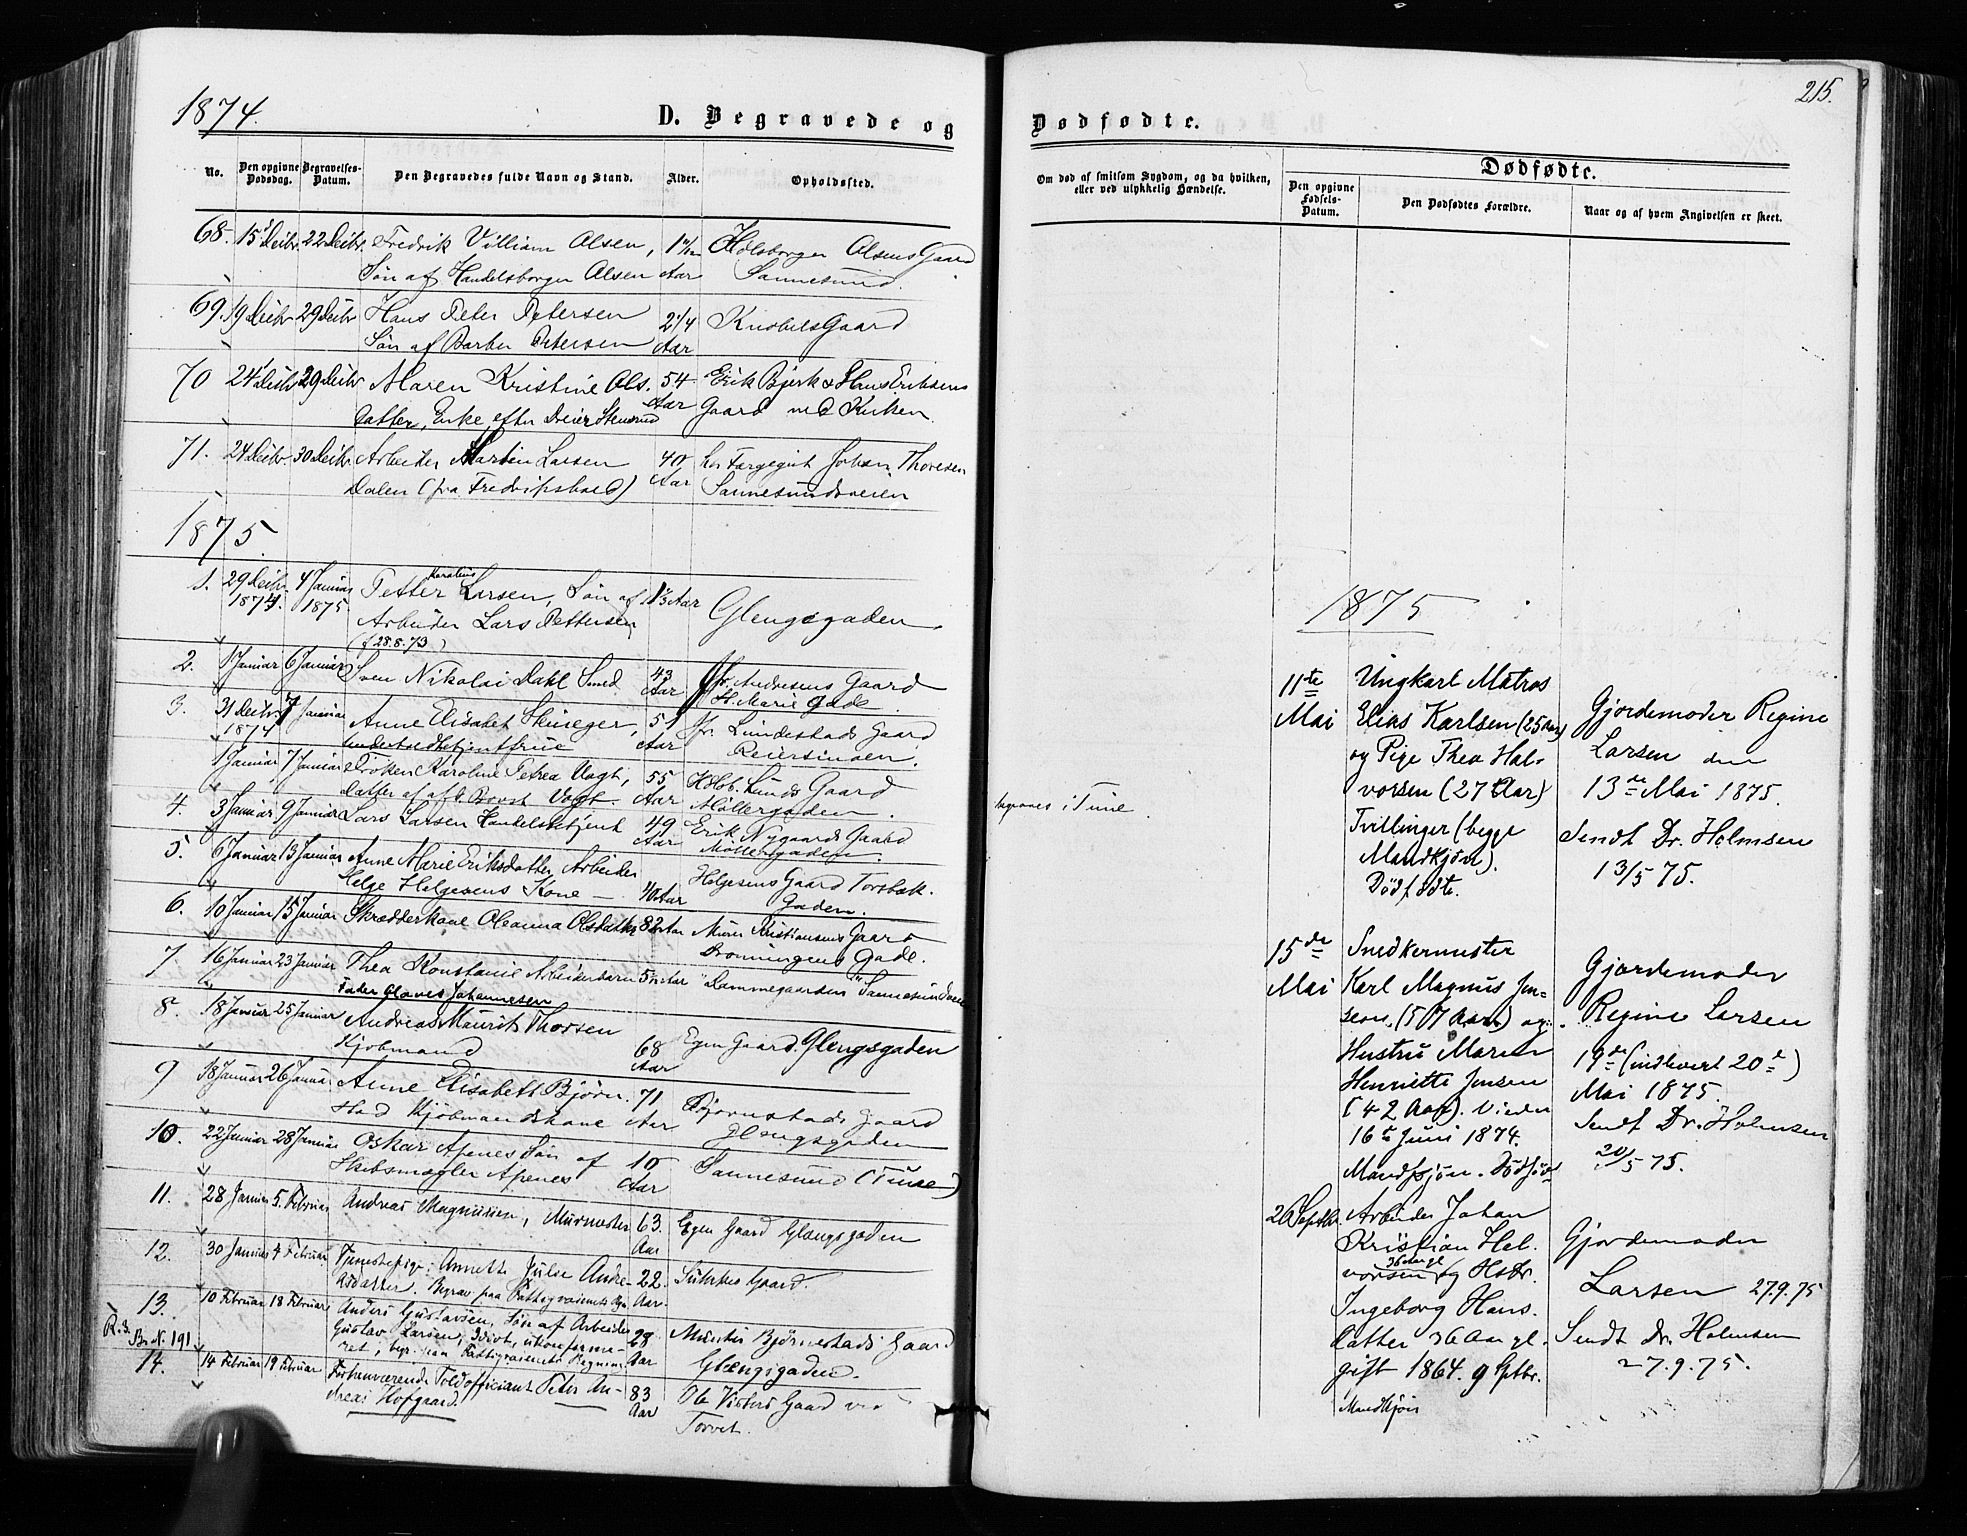 1874.
D. Begravede og
No.
Den opgivne Dødsdag.
Begravelses-Datum.
Den Begravedes fulde Navn og Stand.
Alder.
Opholdssted.
68. 15 Decbr. 22 Decbr. Fredrik Villiam Olsen, 1 Olsens Gaard
Søn af Handelsborger Olsen Aar Sannesund.
69. 19 Decbr 29 Decbr Hans Peter Petersen 2 1/4 Knobels Gaard
Søn af Barber Petersen Aar
70 24 Decbr 29 Decbr Maren Kristine Ols. 54 Erik Bjerk & Hans Eriksens
datter, Enke efter Aar Gaard ved Kirken.
71. 24 Decbr. 30 Decbr. Arbeider Martin Larsen 40 hos Johan Thoresen
Dalen (fra Fredrikshald) Aar Sannesundsveien
1875.
1. 29 Decbr. 4 Januar Petter Larsen, Søn af Aar
1874. 1875. Arbeider Lars Pettersen Glengsgaden.
(f 28.8.73)
2. 1 Januar 6 Januar Sven Nikolai Dahl Smed 43 Andresens Gaard
Aar St. Marie Gade.
3. 31 Decbr. 7 Januar Anne Elisabet 51 Lundestads Gaard
1874 Aar
1 Januar 7 Januar Frøken Karoline Petrea Vogt, 55 Lunds Gaard
datter af Vogt Aar Møllergaden.
4. 3 Januar 9 Januar Lars Larsen 49 Erik Nygaards Gaard
Aar Møllergaden.
5. 6 Januar 13 Januar Anne Marie Eriksdatter, Arbeider Helgesens Gaard Torsbæk-
Helge Helgesens Kone — 40 Aar Gaden.
6. 10 Januar 15 Januar Skrædderkone Oleanna Olsdatter 82 Aar Murer Kristiansens Gaard
Dronningens Gade.
7 16 Januar 23 Januar Thea Konstanse Arbeiderbarn
Fader Olaves Johannesen
8. 18 Januar 25 Januar Andreas Maurits Thorsen 68 Egen Gaard. Glengsgaden
Kjøbmand Aar
9 18 Januar 26 Januar Anne Elisabeth Bjørn- 71 Bjørnstads Gaard
stad Kjøbmandskone Aar Glengsgaden
10. 22 Januar 28 Januar Oskar Apenes Søn af 10 Sannesund (Tune)
Skibsmægler Apenes Aar
11. 28 Januar 5. Februar Andreas Magnussen, Murmester 63. Egen Gaard Glængsgaden
Aar
12. 30 Januar 4 Februar Tjenestepige: Annette Julie Andre- 22. Gaard.
asdatter. Begrav. paa Fattigvæsenets Aar.
13. 10 Februar 18 Februar Anders Gustavsen, Søn af Arbeider
Gustav Larsen, Idiot, ukonfirme- 28 Bjørnestads Gaard
ret, begr. paa Fattigvæsenets Regning Aar Glængsgaden.
Br. N. 191
14. 14 Februar 19 Februar Forhenværende Toldofficiant Peter An- 83 Ole Gaard ved
dreas Hofgaard. Aar Torvet.
215.
Dødfødte.
Om død af smitsom Sygdom, og da hvilken,
eller ved ulykkelig Hændelse.
Dødfødte.
Den opgivne Fødsels-Datum.
Den Dødfødtes Forældre.
Naar og af hvem Angivelsen er skeet.
begraves i Tune
1875
11te Mai
Ungkarl Matros
Elias Karlsen (25 Aar)
og Pige Thea Hal-
vorsen (27 Aar)
Tvillinger (begge
Mandkjøn).
Dødfødte.
Gjordemoder Regine
Larsen den
13de Mai 1875.
Sendt Dr. Holmsen
13/5 75.
15de Mai
Snedkermester
Karl Magnus Jen-
sen, (57 Aar) og
Hustru Maren
Henriette Jensen
(42 Aar). Viede
16de Juni 1874.
Mandkjøn. Dødfødt
Gjordemoder
Regine Larsen
19de (indleveret 20de)
Mai 1875.
Sendt Dr. Holmsen
20/5 75.
26 Septbr.
Arbeider Johan
Kristian Hal-
vorsen 36 Aar gl. og Hstr.
Ingeborg Hans-
datter 36 Aar gl.
gift 1864. 9 Sptbr.
Mandkjøn
Gjordemoder
Larsen 27.9.75
Sendt Dr. Holmsen
27.9.75.